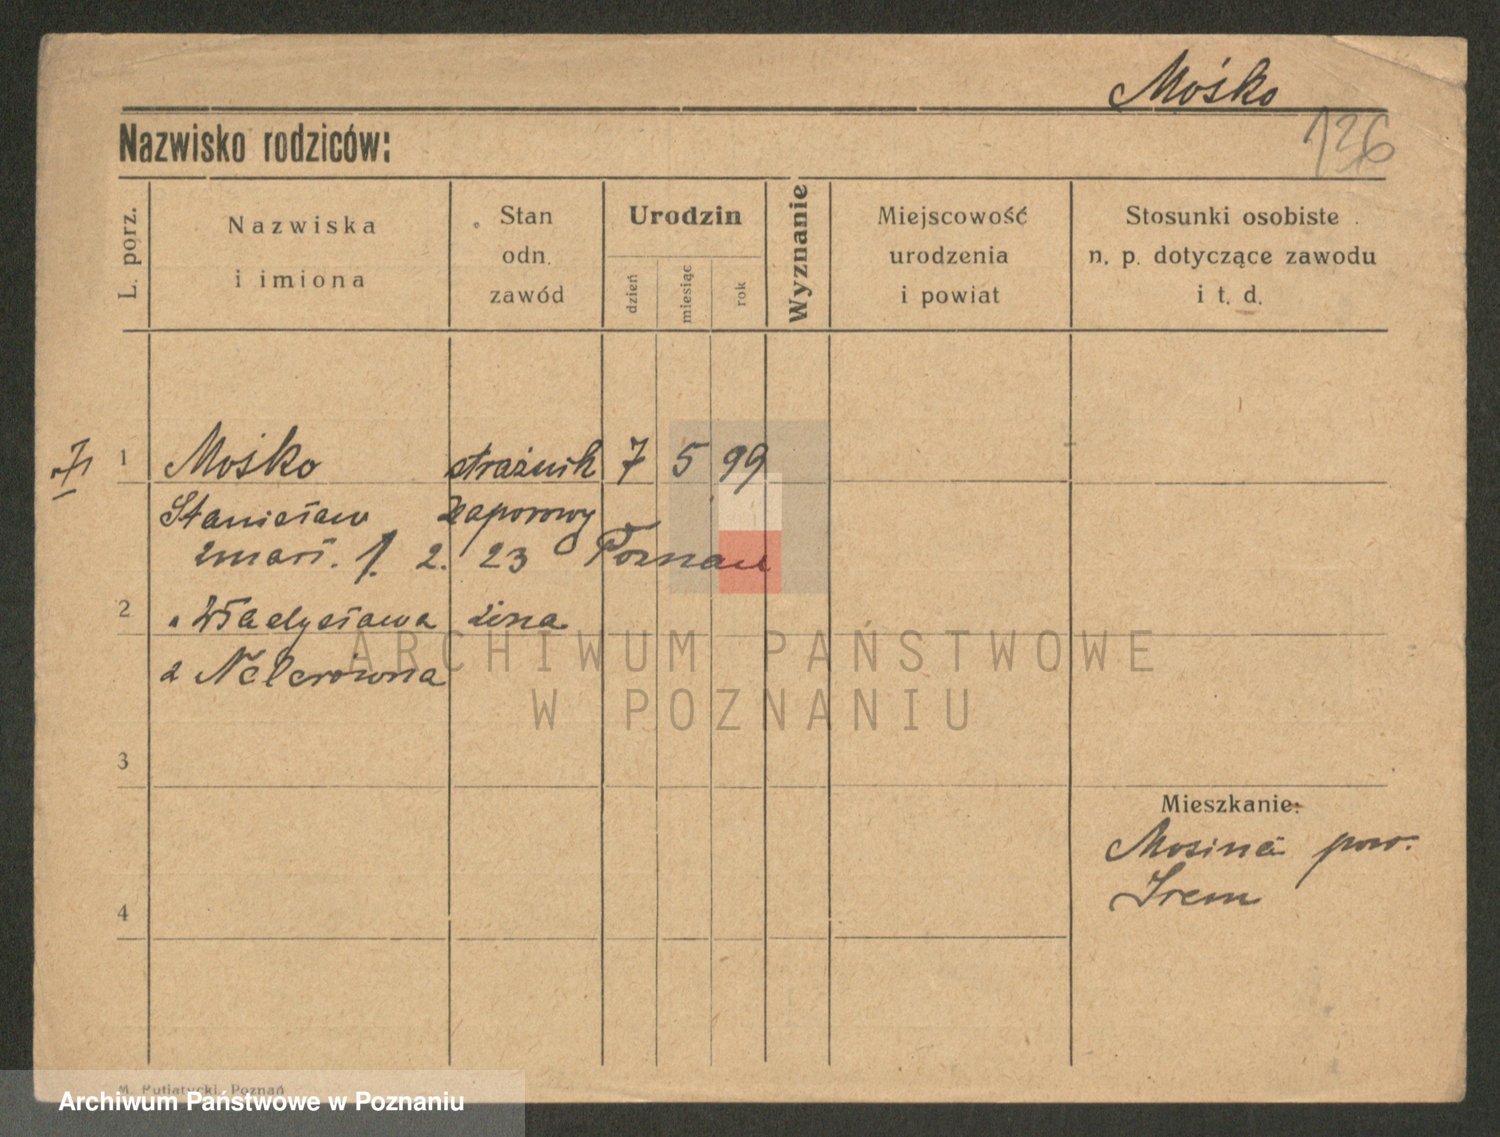 Mośko
136
Nazwisko rodziców:
L. porz.
Nazwiska
i imiona
Stan
odn.
zawód
Urodzin
dzień
miesiąc
rok
Wyznanie
Miejscowość
urodzenia
i powiat
Stosunki osobiste
n. p. dotyczące zawodu
i t. d.
1 Mośko strażnik 7 5 99
Stanisław zaporowy
zmarł. 1. 2. 23 Poznań
2 " Władysława żona
z Nelerówna
3
Mieszkanie:
Mosina pow.
Śrem
4
ARCHIWUM PAŃSTWOWE
W POZNANIU
M. Putiatycki, Poznań
Archiwum Państwowe w Poznaniu